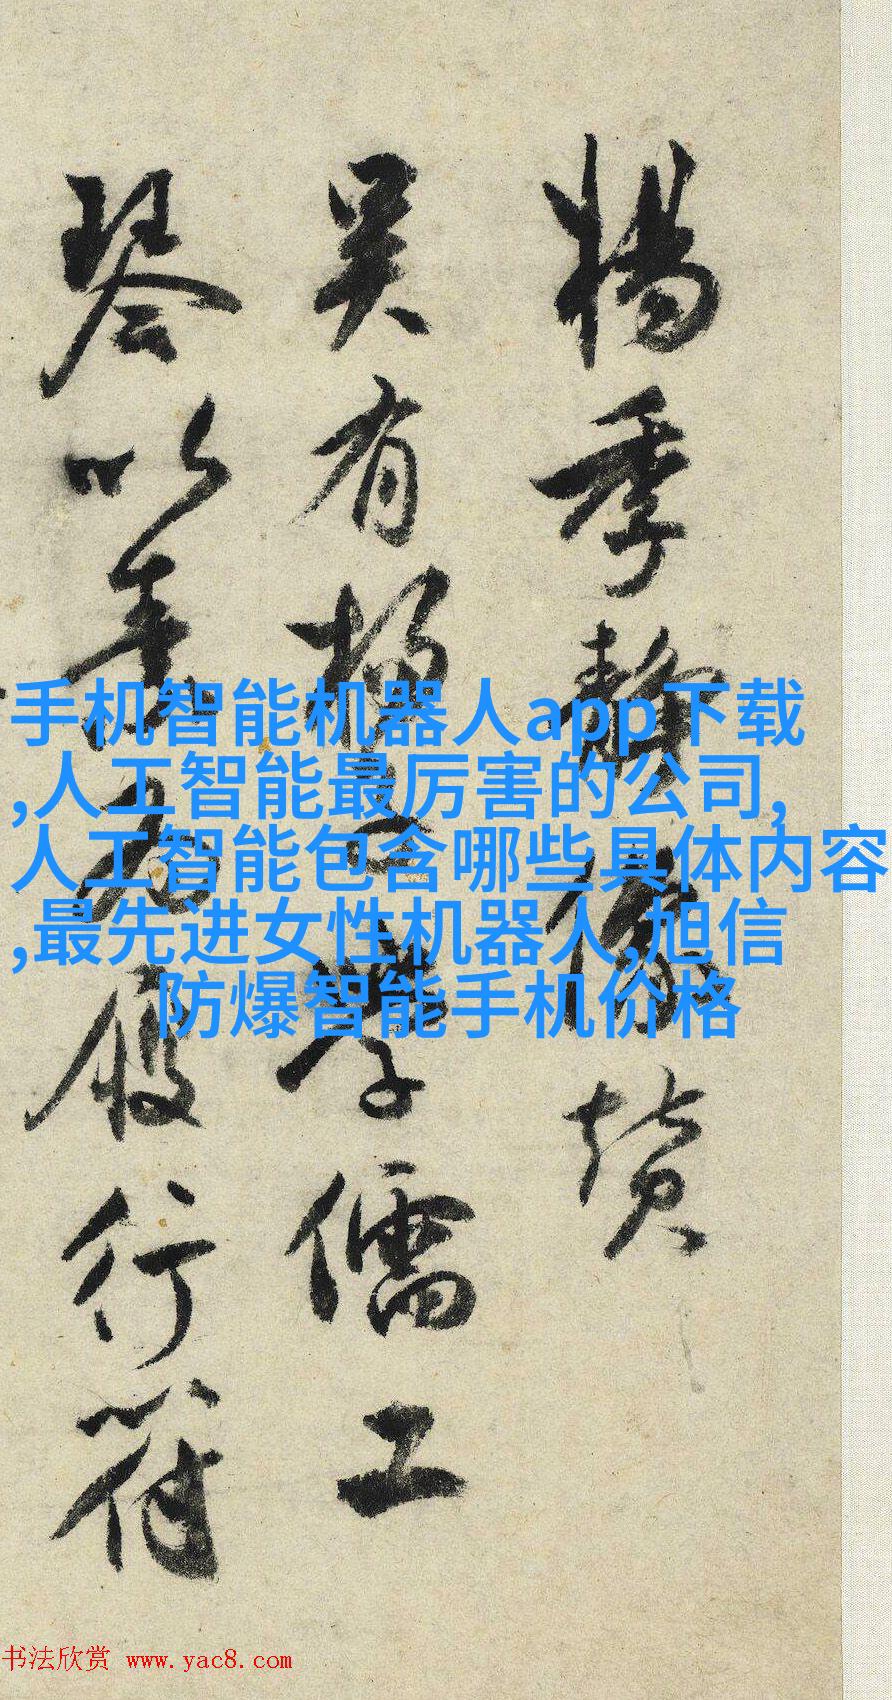 楊季静像赞
吴有杨學儒工
琴以履行符
手机智能机器人app下载
,人工智能最厉害的公司,
人工智能包含哪些具体内容
,最先进女性机器人,旭信
防爆智能手机价格
书法欣赏 www.yac8.com